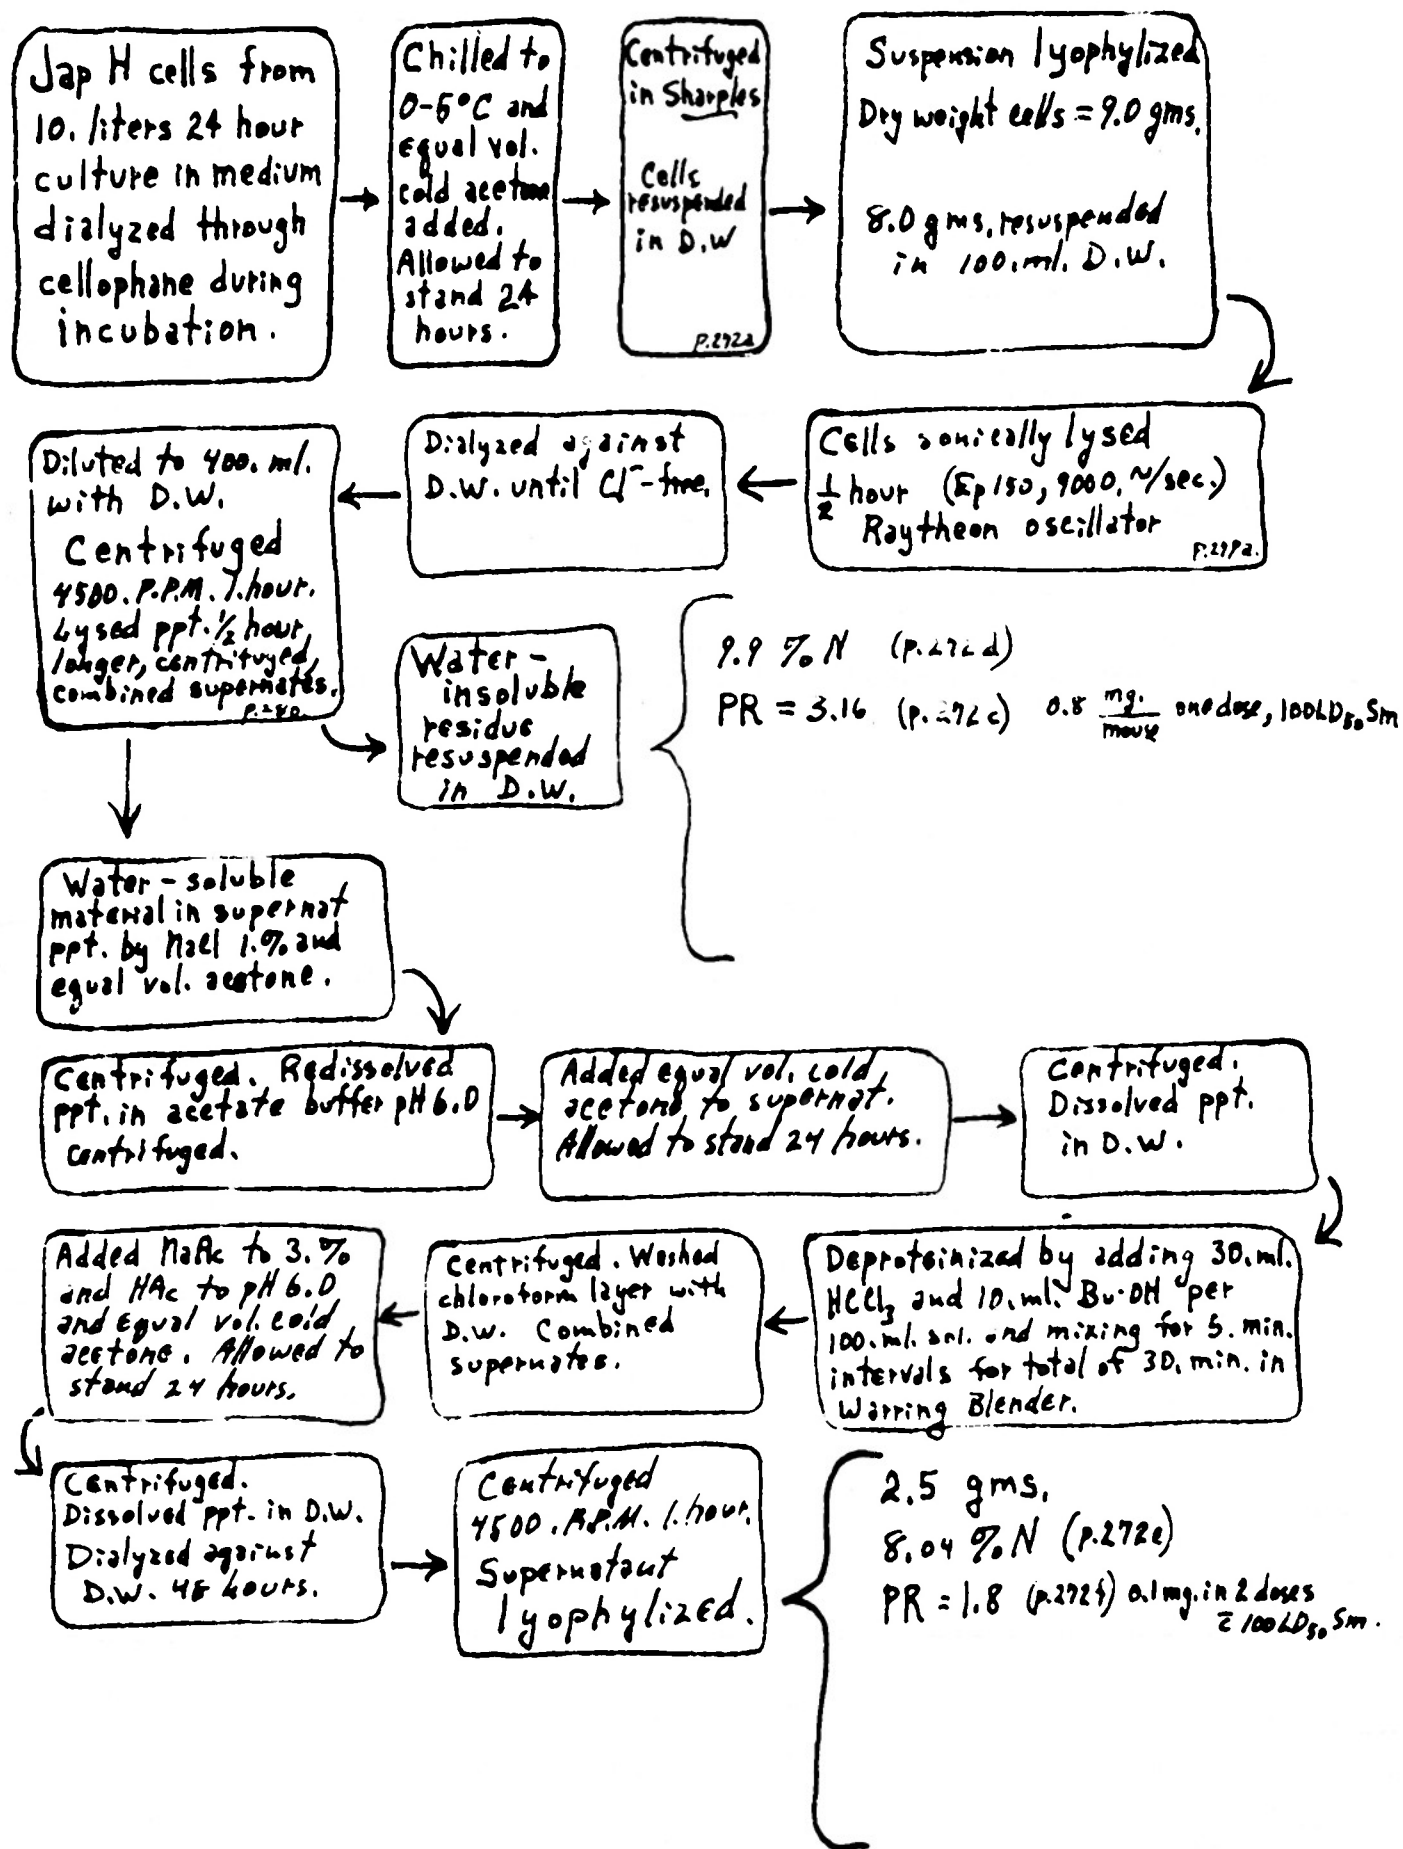 Jap H cells from
10. liters 24 hour
culture in medium
dialyzed through
cellophane during
incubation.
Chilled to
0-5°C and
equal vol.
cold acetone
added.
Allowed to
stand 24
hours.
Centrifuged
in Sharples
Cells
resuspended
in D.W
p.272a
Suspension lyophylized
Dry weight cells = 9.0 gms.
8.0 gms. resuspended
in 100. ml. D.W.
Cells sonically lysed
1/2 hour (Ep 150, 9000. ~/sec.)
Raytheon oscillator
Dialyzed against
D.W. until Cl⁻-free.
Diluted to 400. ml.
with D.W.
Centrifuged
4500. R.P.M. 1. hour.
Lysed ppt. 1/2 hour
longer, centrifuged,
combined supernates.
p.280
Water-
insoluble
residue
resuspended
in D.W.
9.9 % N (p.272d)
PR = 3.16 (p.272c) 0.8 mg./mouse one dose, 100LD₅₀ Sm
Water-soluble
material in supernat
ppt. by NaCl 1.% and
equal vol. acetone.
Centrifuged. Redissolved
ppt. in acetate buffer pH 6.0
centrifuged.
Added equal vol. cold
acetone to supernat.
Allowed to stand 24 hours.
Centrifuged.
Dissolved ppt.
in D.W.
Deproteinized by adding 30. ml.
HCCl₃ and 10. ml. Bu-OH per
100. ml. sol. and mixing for 5. min.
intervals for total of 30. min. in
Warring Blender.
Centrifuged. Washed
chloroform layer with
D.W. Combined
supernates.
Added NaAc to 3.%
and HAc to pH 6.0
and equal vol. cold
acetone. Allowed to
stand 24 hours.
Centrifuged.
Dissolved ppt. in D.W.
Dialyzed against
D.W. 48 hours.
Centrifuged
4500. R.P.M. 1. hour.
Supernatant
lyophylized.
2.5 gms.
8.04 % N (p.272e)
PR = 1.8 (p.272f) 0.1 mg. in 2 doses
c̄ 100LD₅₀ Sm.